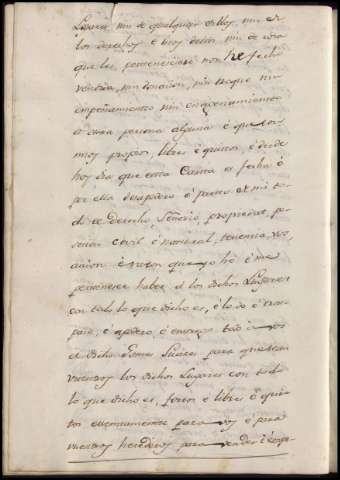 Lugares, nin de qualquier dellos, nin de
los derechos é usos dellos nin de cosa
que les pertenesciese non he fecho
vendida, nin donacion, nin troque nin
empeñamiento nin enagenamiento
á otra persona alguna é que son
mios propios, libres é quitos, é desde
hoy dia que esta Carta es fecha é
por ella desapodero é parto de mi to-
do el derecho, Señorio, propiedad, po-
sesion civil é natural, tenencia, voz,
accion é razon que yo hé é me
pertenesce haber á los dichos Lugares
con todo lo que dicho es, é lo do é tras-
paso, é apodero é entrego todo á vos
el dicho Gomez Suarez para que sean
vuestros los dichos Lugares con todo
lo que dicho es, foros é libres é qui-
tos esentamente para vos é para
vuestros herederos para vender é empe-